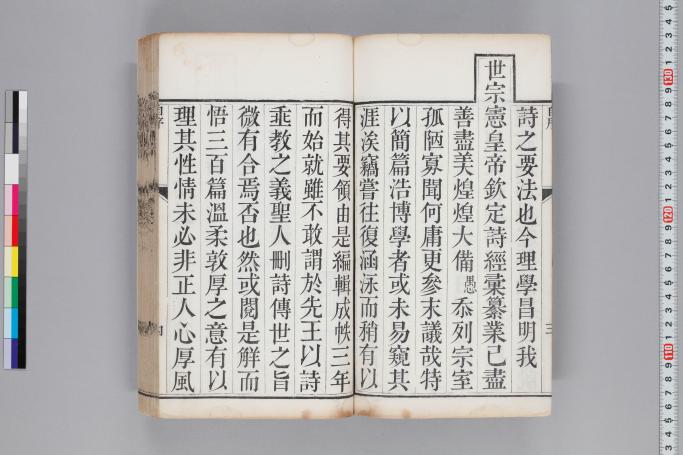 詩之要法也今理學昌明我
世宗憲皇帝欽定詩經彙纂業已盡
善盡美煌煌大備愚忝列宗室
孤陋寡聞何庸更參末議哉特
以簡篇浩博學者或未易窺其
涯涘竊嘗往復涵泳而稍有以
得其要領由是編輯成帙三年
而始就雖不敢謂於先王以詩
垂教之義聖人刪詩傳世之旨
微有合焉否也然或閱是解而
悟三百篇溫柔敦厚之意有以
理其性情未必非正人心厚風
三
四